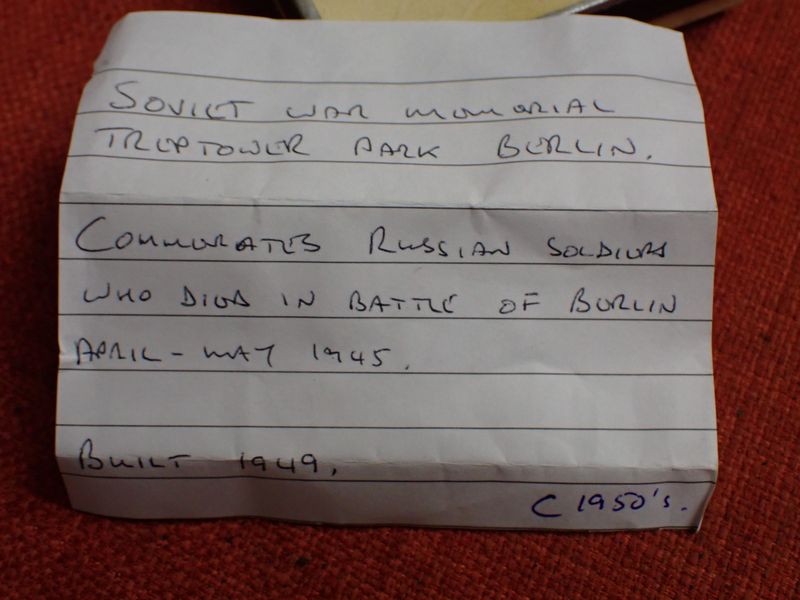 SOVIET WAR MEMORIAL
TREPTOWER PARK BERLIN.
COMMORATES RUSSIAN SOLDIERS
WHO DIED IN BATTLE OF BERLIN
APRIL - MAY 1945.
BUILT 1949.
C 1950's.